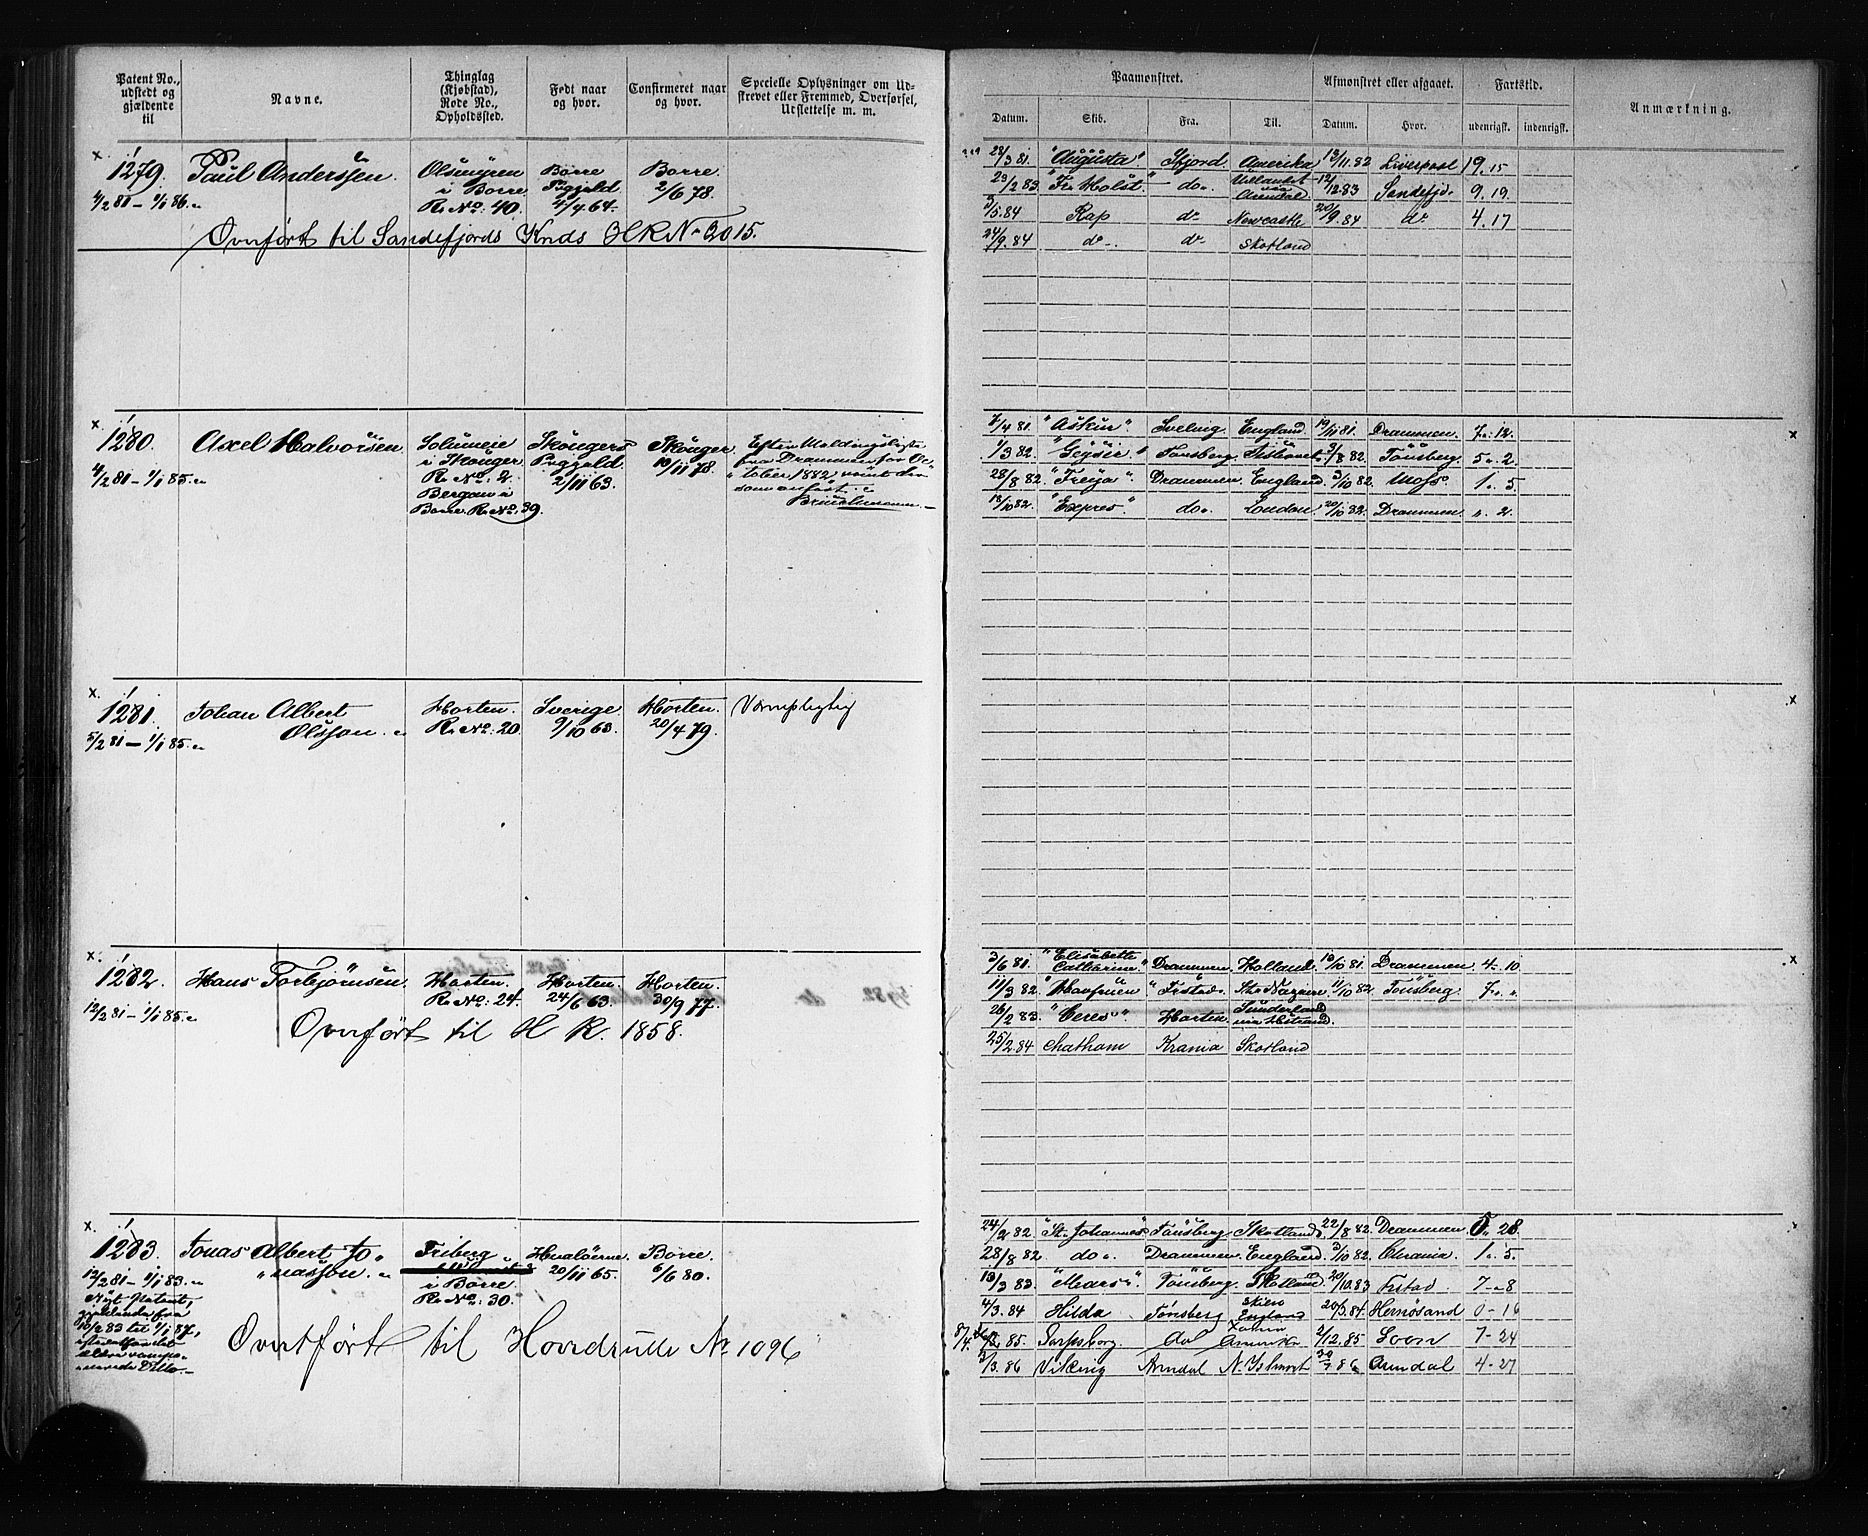 Patent No., udstedt og gjældende til
Navne.
Thinglag (Kjøbstad), Rode No., Opholdssted.
Født naar og hvor.
Confirmeret naar og hvor.
Specielle Oplysninger om Udskrevet eller Fremmed, Overførsel, Udslettelse m. m.
Paamønstret.
Afmønstret eller afgaaet.
Fartstid.
Anmærkning.
Datum. Skib. Fra. Til. Datum. Hvor. udenrigsk. indenrigsk.
x. 1279. Paul Anderssen.
4/2 81 – 1/1 86.
i Borre
R. No: 40.
Borre Prgjeld 4/4 64.
Borre 2/6 78.
Ovnført til Sandefjords Knds HR No 2015.
28/3 81. "Augusta". Sfjord Amerika 13/11 82 Liverpool 19. 15
23/2 83. "Fr Holst" do. Udlandet via Arendal 12/12 83 Sandefjd. 9. 19.
3/5 84 Rap do Newcastle 20/9 84 do 4. 17
24/9. 84 do. do Skotland
x. 1280. Axel Halvorsen.
4/2 81 – 1/1 85.
i Skouger
R. No. 2.
i Borre. R. No. 39.
Skougers Prgjeld 2/11 63.
Skouger 10/11 78.
Efter Meldingsliste fra Drammen for October 1882
7/4 81. "Askin" Svelvig. England. 19/11 81. Drammen. 7. 12.
1/3 82. "Geysir" Tønsberg. 9/8 82. Tønsberg. 5. 2.
28/8 82. "Freya" Drammen. England. 3/10 82. Moss. 1. 5.
18/10 82. "Expres". do. London. 20/10 82. Drammen. „ 2.
x. 1281. Johan Albert Olsson.
5/2 81 – 1/1 85.
Horten. R. No: 20.
Sverige. 9/10 63.
Horten. 20/4 79.
Værnpligtig
x. 1282. Hans Torbjørnsen.
12/2 81 – 1/1 85.
Horten. R. No: 24.
Horten. 24/6 63.
Horten. 30/9 77.
Ovnført til H R. 1858.
3/6 81. "Elisabeth Catharina." Drammen. Holland. 13/10 81. Drammen 4. 10.
11/3 82. "Havfruen" Frstad. St. Nazaire 11/10 82. Tønsberg. 7. „
26/2 83. "Ceres". Horten. Sunderland via Hstrand.
25/2. 84 Chatham Krania Skotland
x. 1283. Jonas Albert Jonasson.
12/2 81 – 1/1 83.
Nyt Patent, gjældende fra
10/2 83 til 1/1 87,
Friberg
i Borre.
R. No: 30.
Hvaløerne. 20/11 65.
Borre. 6/6 80.
Ovntført til Hovedrulle No. 1096
24/2 82. "St. Johannes" Tønsberg. Skotland. 22/8 82. Drammen 5. 28
28/8 82. do. Drammen. England. 3/10 82. Chrania. 1. 5.
13/3 83. "Mars" Tønsberg. Skotland 20/10. 83 Frstad. 7 – 8
4/3. 84 Hilda Tønsberg Skien England 20/3. 84. Hernøsand 0 – 16
85. Sarpsborg. do Amerika 2/12. 85 7 – 24
3/3. 86 Viking Arndal 86 Arendal 4 – 27